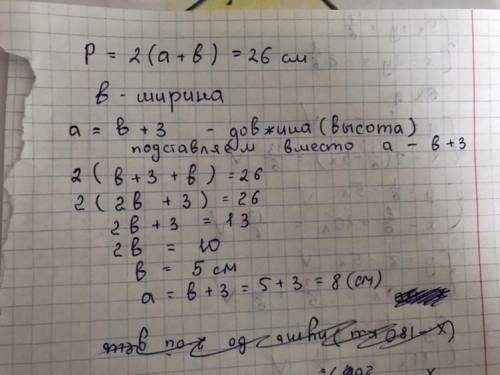 P = 2(a+b) = 26 см
b - ширина
a = b + 3 - довжина (высота)
подставляем вместо a - b+3
2(b+3+b) = 26
2(2b+3) = 26
2b+3 = 13
2b = 10
b = 5 см
a = b+3 = 5+3 = 8 (см)